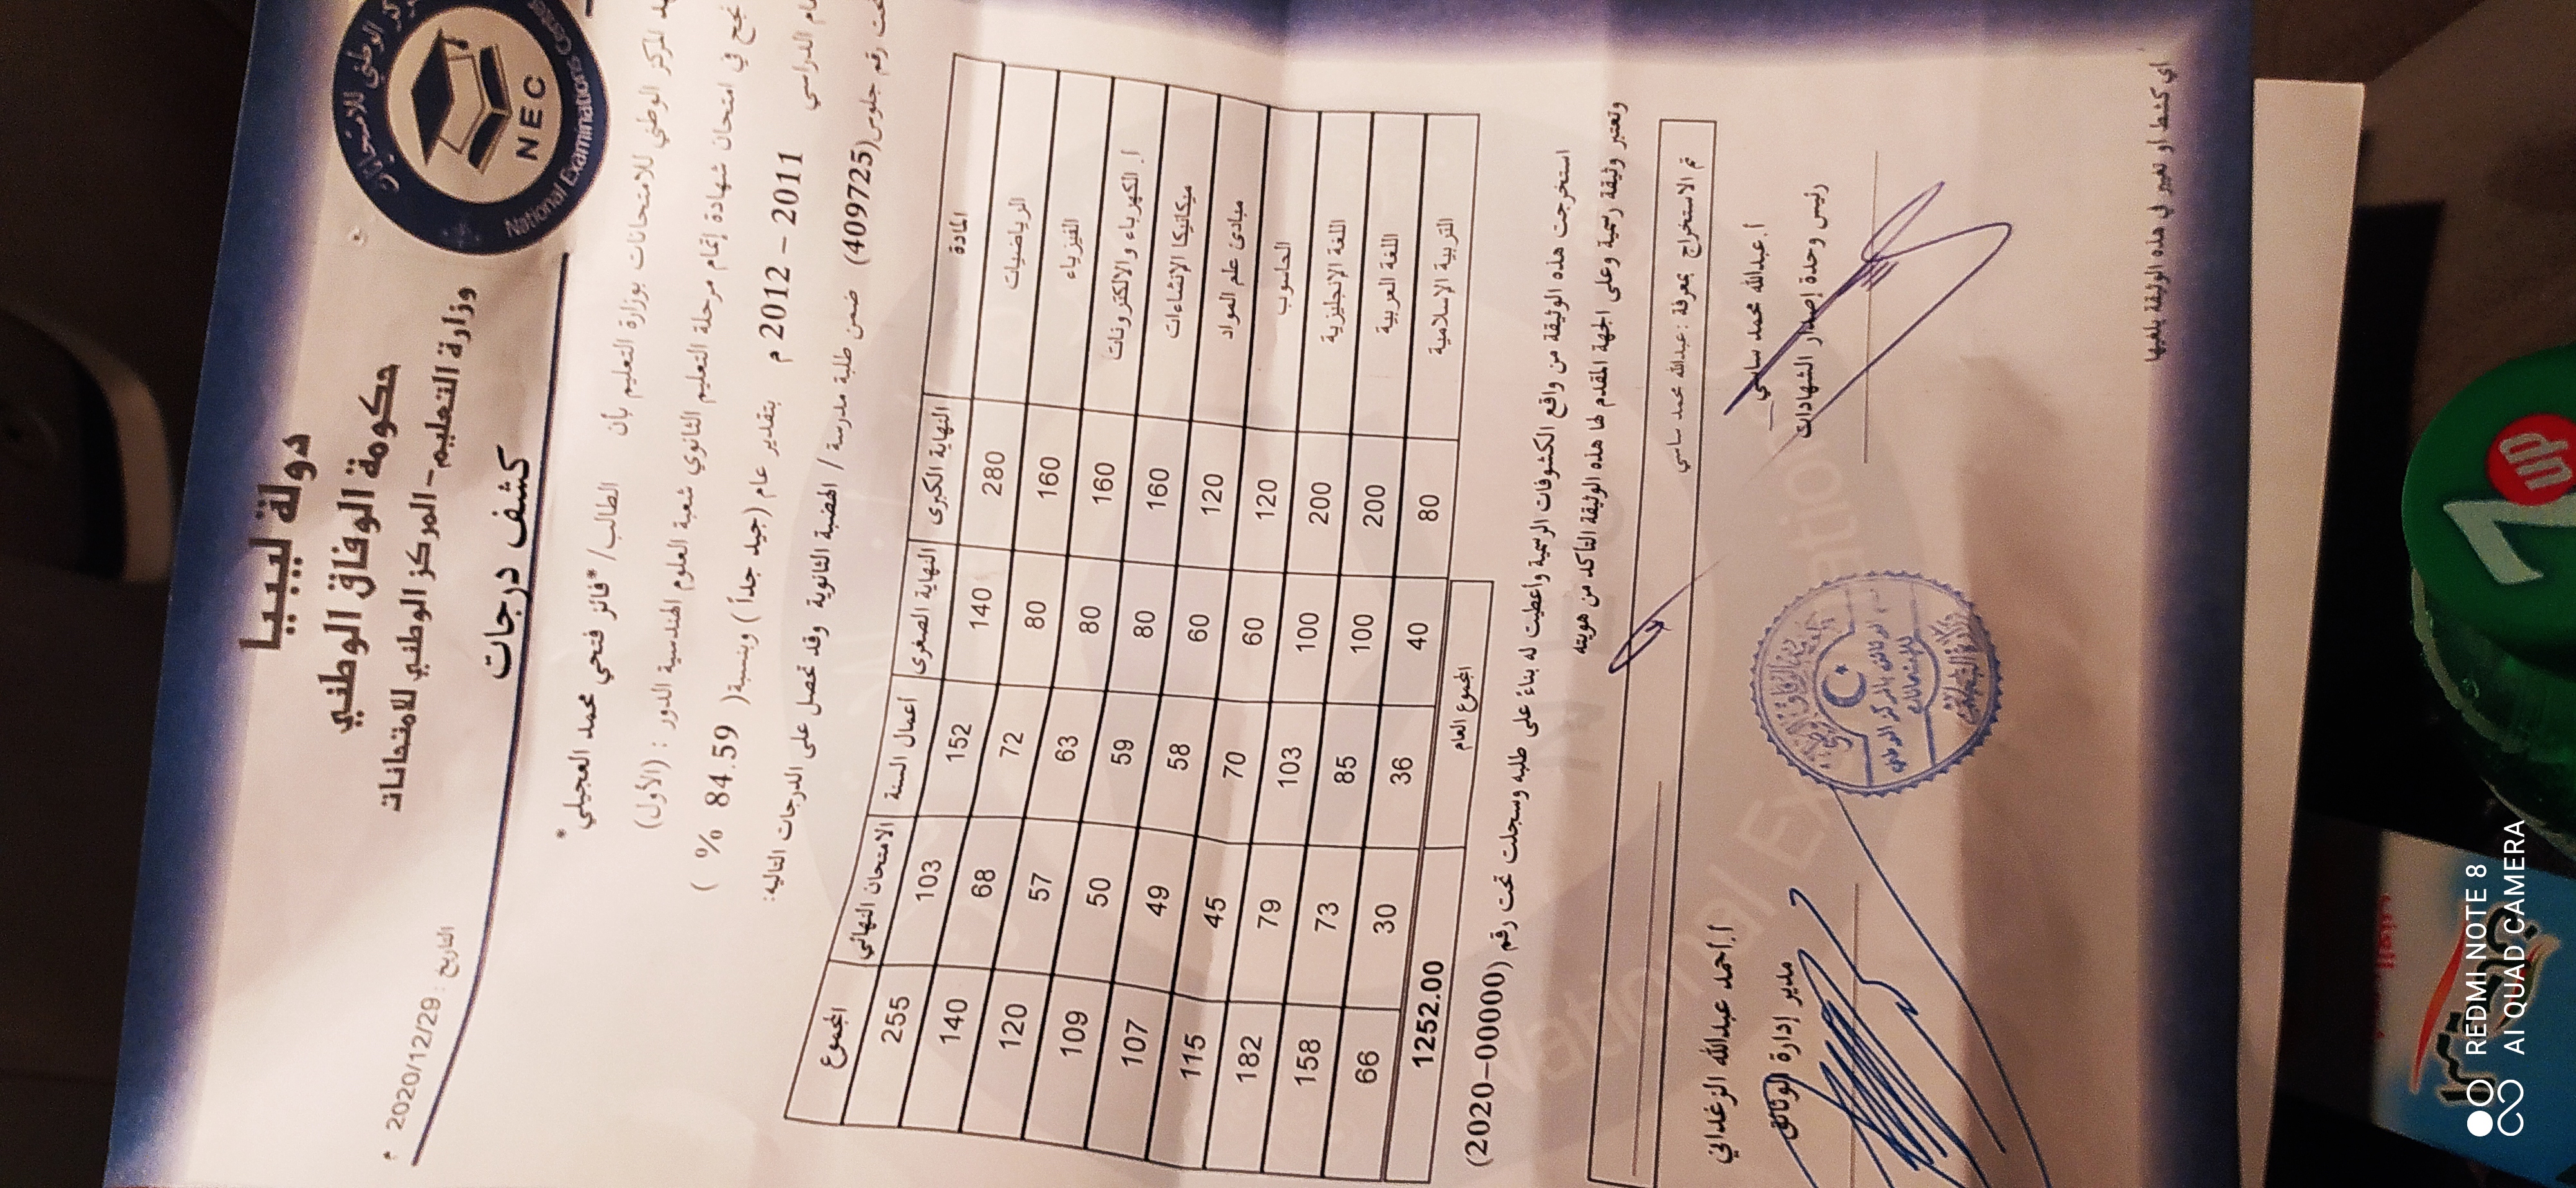 دولة ليبيا
حكومة الوفاق الوطني
وزارة التعليم - المركز الوطني للامتحانات
كشف درجات
المركز الوطني للامتحانات
NEC
National Examinations Center
التاريخ : 2020/12/29 م
المركز الوطني للامتحانات بوزارة التعليم بأن الطالب/ *فائز فتحي محمد العجيلي*
نجح في امتحان شهادة إتمام مرحلة التعليم الثانوي شعبة العلوم الهندسية الدور : (الأول)
الدراسي 2011 – 2012 م بتقدير عام (جيد جداً ) وبنسبة( 84.59 % )
رقم جلوس(409725) ضمن طلبة مدرسة / الهضبة الثانوية وقد تحصل على الدرجات التالية:
المادة النهاية الكبرى النهاية الصغرى أعمال السنة الامتحان النهائي المجموع
الرياضيات 280 140 152 103 255
الفيزياء 160 80 72 68 140
أ. الكهرباء والالكترونات 160 80 63 57 120
ميكانيكا الإنشاءات 160 80 59 50 109
مبادئ علم المواد 120 60 58 49 107
الحاسوب 120 60 70 45 115
اللغة الإنجليزية 200 100 103 79 182
اللغة العربية 200 100 85 73 158
التربية الإسلامية 80 40 36 30 66
المجموع العام 1252.00
استخرجت هذه الوثيقة من واقع الكشوفات الرسمية وأعطيت له بناءً على طلبه وسجلت تحت رقم (00000-2020)
وتعتبر وثيقة رسمية وعلى الجهة المقدم لها هذه الوثيقة التأكد من هويته
تم الاستخراج بمعرفة : عبدالله محمد ساسي
أ.عبدالله محمد ساسي
رئيس وحدة إصدار الشهادات
أ.أحمد عبدالله الزغداني
مدير إدارة الوثائق
أي كشط او تغيير في هذه الوثيقة يلغيها
7UP
REDMI NOTE 8
AI QUAD CAMERA